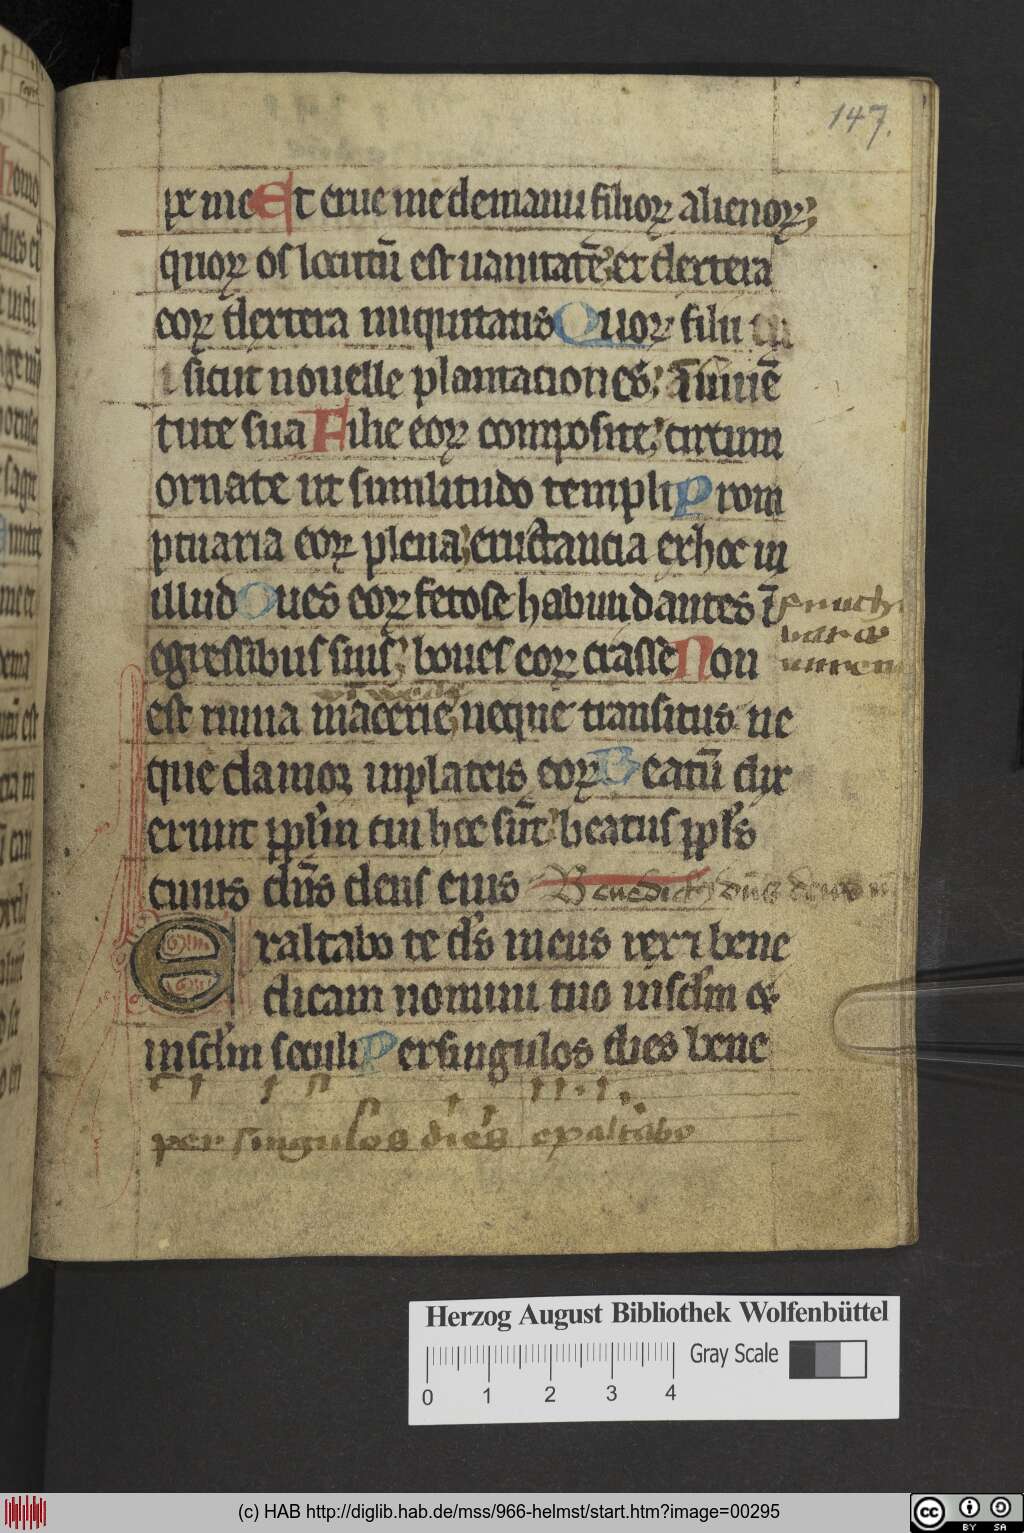 147.
pe me Et erue me de manu filioꝝ alienoꝝ;
quoꝝ os locutū est uanitatē; et dextera
eoꝝ dextera iniquitatis Quoꝝ filii
sicut nouelle plantaciones; in iuuē
tute sua Filie eoꝝ composite; circum
ornate ut similitudo templi Prom
ptuaria eoꝝ plena; eructancia ex hoc in
illud Oues eoꝝ fetose habundantes ī
egressibus suis; boues eoꝝ crasse Non
est ruina macerie; neque transitus ne
que clamor in plateis eoꝝ Beatū dix
erunt ppl'm cui hec sūt; beatus ppl's
cuius dn̄s deus eius Benedictus dn̄s deus
Exaltabo te d's meus rex ⁊ bene
dicam nomini tuo in sc'lm &
in sc'lm seculi Per singulos dies bene
per singulos dies exaltabo
Herzog August Bibliothek Wolfenbüttel
Gray Scale
0 1 2 3 4
(c) HAB http://diglib.hab.de/mss/966-helmst/start.htm?image=00295
cc BY SA